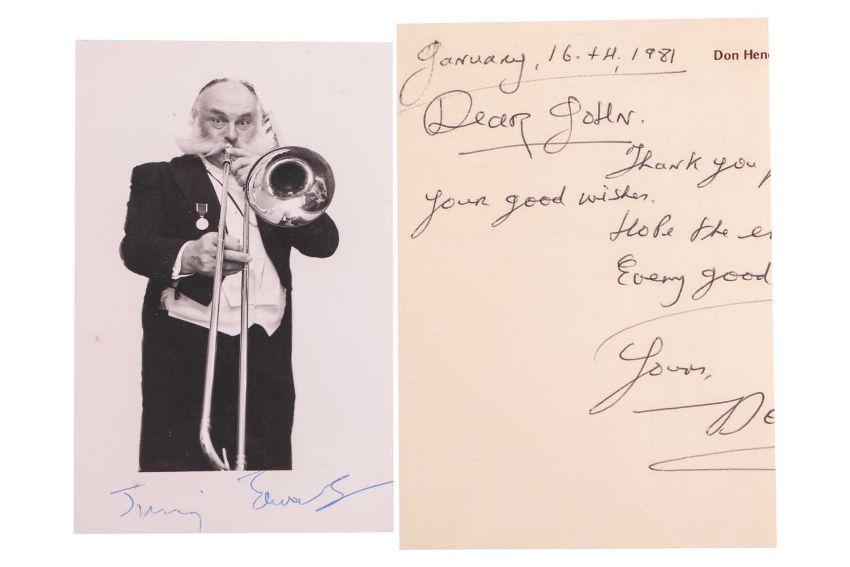 Jimmy Edwards
January, 16.tH, 1981
Don Hen
Dear John.
Thank you
your good wishes.
Hope the
Every good
Yours,
De